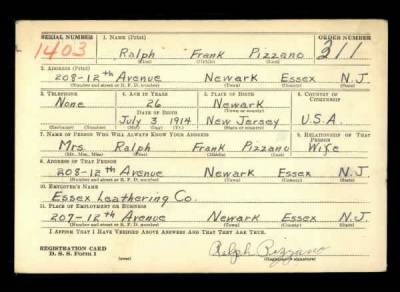 SERIAL NUMBER 1. NAME (Print) ORDER NUMBER
1403 Ralph Frank Pizzano 211
(First) (Middle) (Last)
2. ADDRESS (Print)
208-12th Avenue Newark Essex N.J.
(Number and street or R. F. D. number) (Town) (County) (State)
3. TELEPHONE 4. AGE IN YEARS 5. PLACE OF BIRTH 6. COUNTRY OF CITIZENSHIP
None 26 Newark
DATE OF BIRTH (Town or county)
July 3 1914 New Jersey U.S.A.
(Exchange) (Number) (Mo.) (Day) (Yr.) (State or country)
7. NAME OF PERSON WHO WILL ALWAYS KNOW YOUR ADDRESS 8. RELATIONSHIP OF THAT PERSON
Mrs. Ralph Frank Pizzano Wife
(Mr., Mrs., Miss) (First) (Middle) (Last)
9. ADDRESS OF THAT PERSON
208-12th Avenue Newark Essex N.J.
(Number and street or R. F. D. number) (Town) (County) (State)
10. EMPLOYER'S NAME
Essex Leathering Co.
11. PLACE OF EMPLOYMENT OR BUSINESS
207-12th Avenue Newark Essex N.J.
(Number and street or R. F. D. number) (Town) (County) (State)
I AFFIRM THAT I HAVE VERIFIED ABOVE ANSWERS AND THAT THEY ARE TRUE.
REGISTRATION CARD
D. S. S. Form 1 (over) Ralph Pizzano